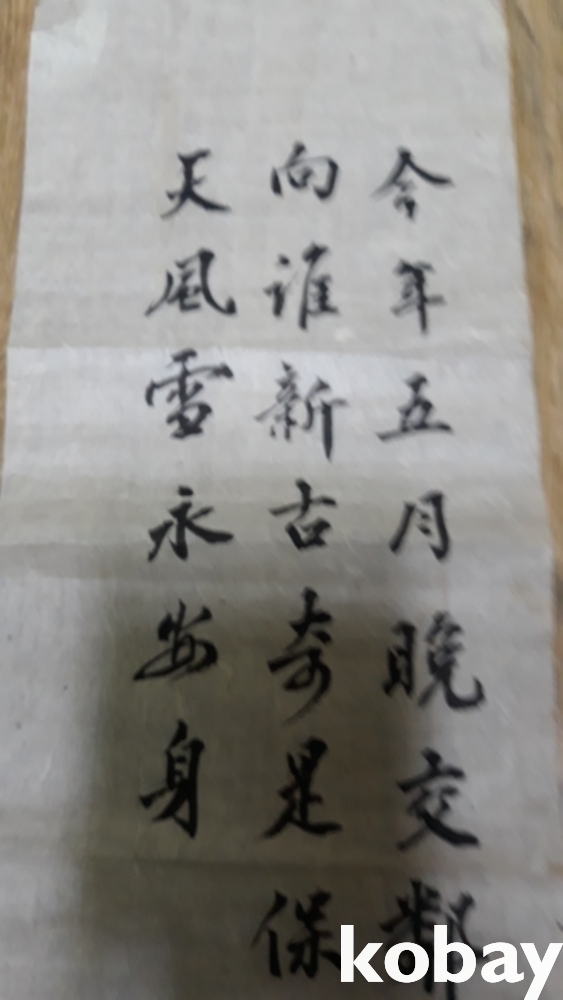 今年五月晚交鄰
向谁新古奇是保
天風雪永安身
kobay